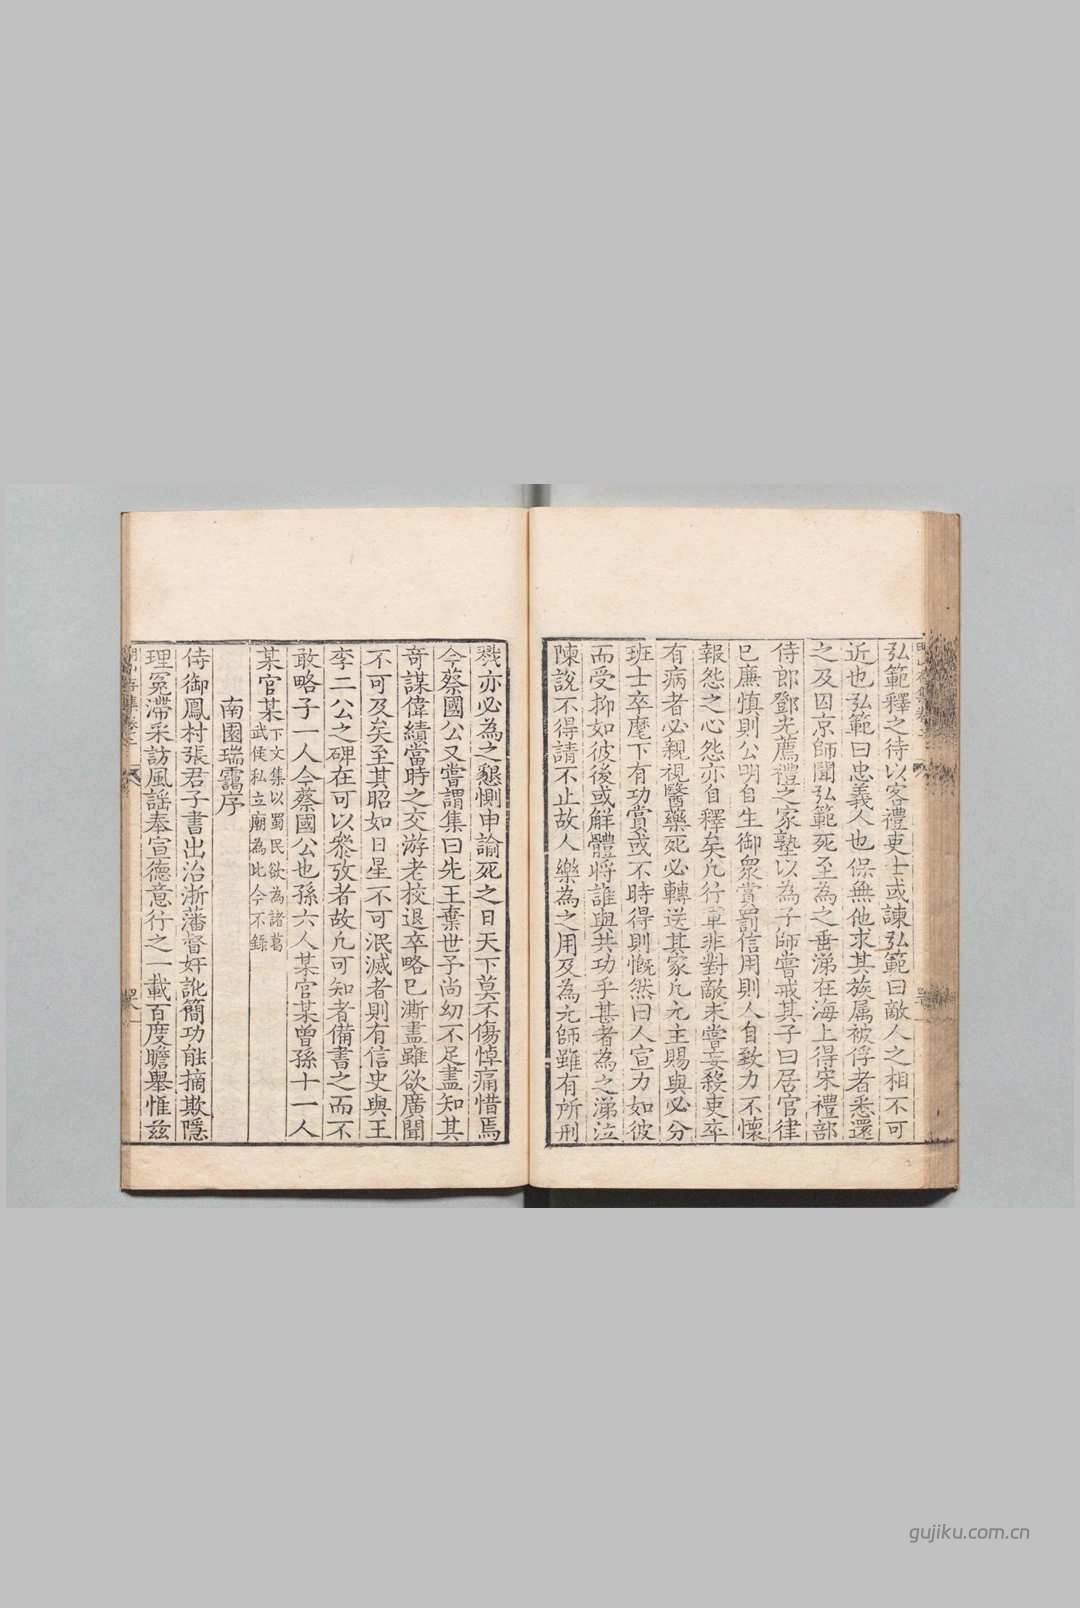 弘範釋之待以客禮吏士或諫弘範曰敵人之相不可
近也弘範曰忠義人也保無他求其族属被俘者悉還
之及囚京師聞弘範死至為之垂涕在海上得宋禮部
侍郎鄧光薦禮之家塾以為子師嘗戒其子曰居官律
已廉慎則公明自生御衆賞罰信用則人自致力不懷
報怨之心怨亦自釋矣凡行軍非對敵未嘗妄殺吏卒
有病者必親視醫藥死必轉送其家凡元主賜與必分
班士卒麾下有功賞或不時得則慨然曰人宣力如彼
而受抑如彼後或解體將誰與共功乎甚者為之涕泣
陳說不得請不止故人樂為之用及為元師雖有所刑
戮亦必為之懇惻申諭死之日天下莫不傷悼痛惜焉
今蔡國公又嘗謂集曰先王棄世子尚幼不足盡知其
奇謀偉績當時之交游老校退卒略已漸盡雖欲廣聞
不可及矣至其昭如日星不可泯滅者則有信史與王
李二公之碑在可以叅攷者故凡可知者備書之而不
敢略子一人今蔡國公也孫六人某官某曾孫十一人
某官某下文集以蜀民欲為諸葛
武侯私立廟為此今不錄
南園瑞靄序
侍御鳳村張君子書出治浙藩督奸訛簡功能摘欺隱
理冤滯采訪風謡奉宣德意行之一載百度瞻舉惟茲
gujiku.com.cn